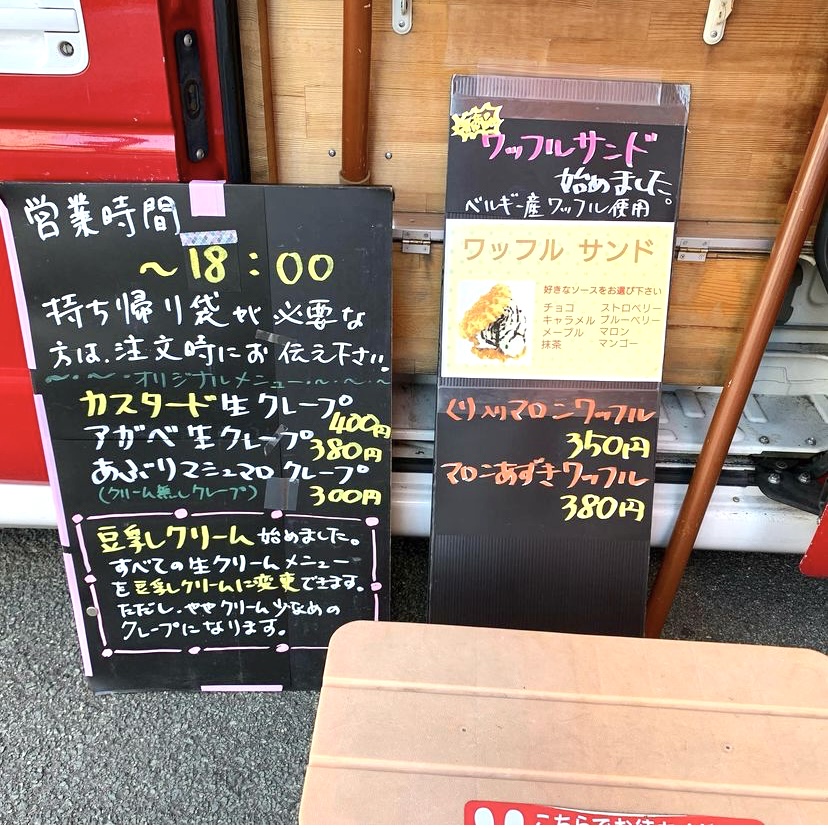 営業時間
〜18:00
持ち帰り袋が必要な
方は、注文時にお伝え下さい!!
オリジナルメニュー
カスタード生クレープ
400円
アガベ生クレープ
380円
あぶりマシュマロクレープ
(クリーム無しクレープ)
300円
豆乳クリーム始めました。
すべての生クリームメニュー
を豆乳クリームに変更できます。
ただし、ややクリーム少なめの
クレープになります。
ワッフルサンド
始めました。
ベルギー産ワッフル使用
ワッフル サンド
好きなソースをお選び下さい
チョコ ストロベリー
キャラメル ブルーベリー
メープル マロン
抹茶 マンゴー
くり入りマロンワッフル
350円
マロンあずきワッフル
380円
こちらでお待